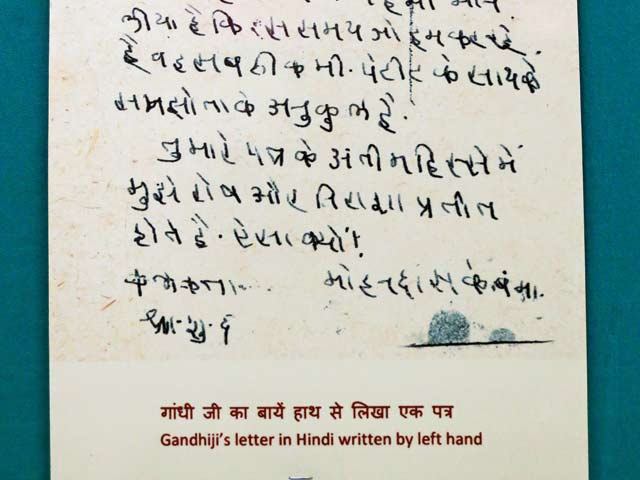 लीया है कि इस समय जो हम कर रहे
है वह सब ठीक मी. पेटीट के साथ के
समझोता के अनुकुल है.
तुमारे पत्र के अंतीम हिस्से में
मुझे रोष और निराशा प्रतीत
होते है. ऐसा क्यों!
मोहनदास के
गांधी जी का बायें हाथ से लिखा एक पत्र
Gandhiji's letter in Hindi written by left hand